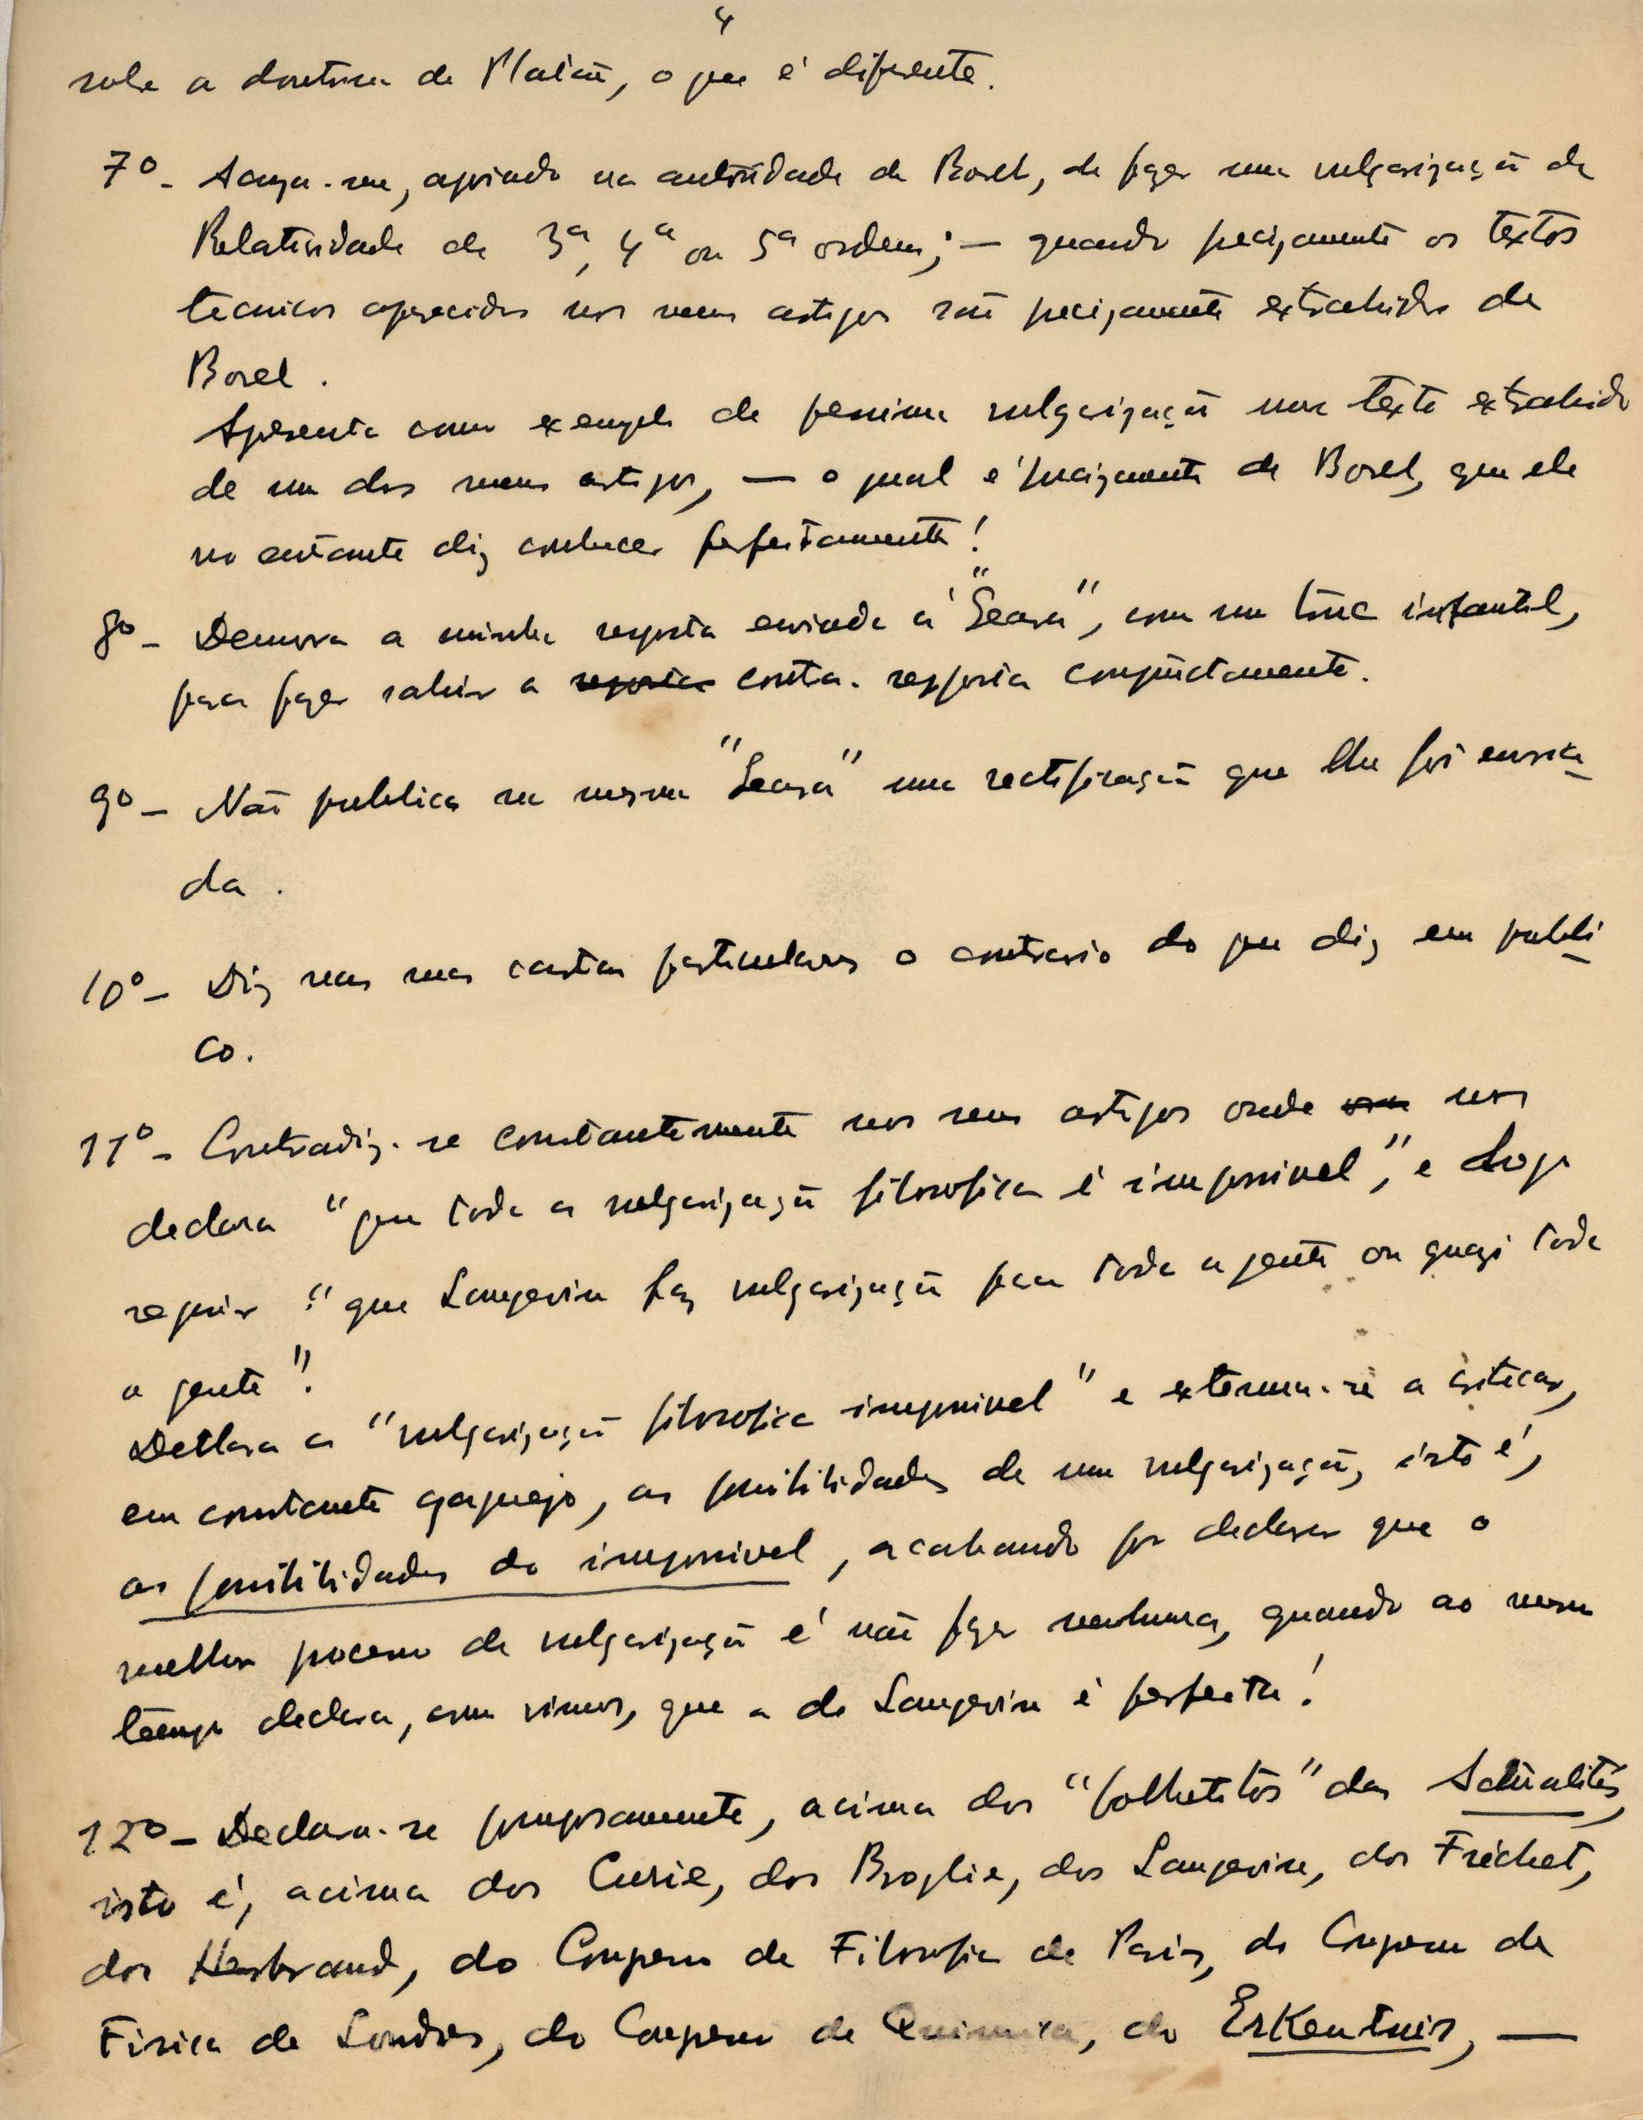 4
sobre a doutrina de Platão, o que é diferente.
7º - Acusa-me, apoiado na autoridade de Borel, de fazer uma vulgarização da
Relatividade de 3ª, 4ª ou 5ª ordem; — quando precizamente os textos
tecnicos aparecidos nos meus artigos são precizamente extrahidos de
Borel.
Apresenta como exemplo de pessima vulgarização um texto extrahido
de um dos meus artigos, — o qual é precizamente de Borel, que ele
no entanto diz conhecer perfeitamente!
8º - Demora a minha resposta enviada á "Seara", com um truc infantil,
para fazer sahir a contra-resposta conjuctamente.
9º - Não publica na mesma "Seara" uma rectificação que lhe foi envia-
da.
10º - Diz nas suas cartas particulares o contrario do que diz em publi-
co.
11º - Contradiz-se constantemente nos seus artigos onde nos
declara "que toda a vulgarização filosofica é impossivel", e logo
a seguir "que Langevin faz vulgarização para toda a gente ou quazi toda
a gente".
Declara a "vulgarização filosofica impossivel" e extenua-se a criticar,
em constante, as possibilidades de uma vulgarização, isto é,
as possibilidades do impossivel, acabando por declarar que o
melhor processo de vulgarização é não fazer nenhuma, quando ao mesmo
tempo declara, como vimos, que a de Langevin é perfeita!
12º - Declara-se pomposamente, acima dos "folhetitos" das Actualités,
isto é, acima dos Curie, dos Broglie, dos Langevin, dos Fréchet,
dos Herbrand, do Congresso de Filosofia de Paris, do Congresso de
Fisica de Londres, do Congresso de Quimica, do Erkentnis, —